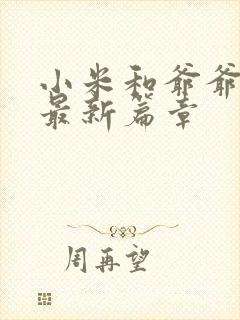 小米和爷爷
最新篇章
周再望